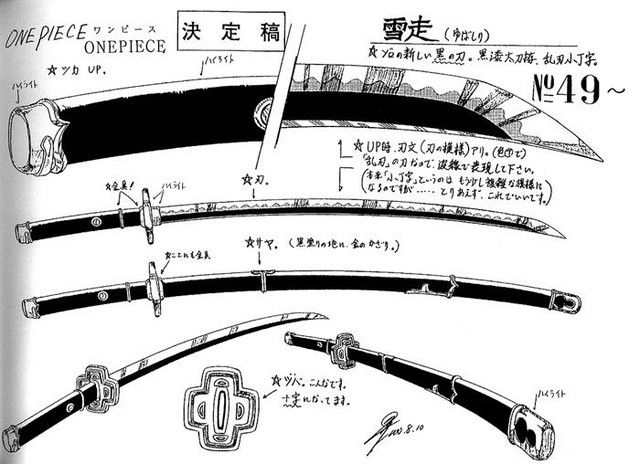 ONE PIECE ワンピース
ONEPIECE
決定稿
雪走 (ゆばしり)
☆ゾロの新しい黒の刀。黒漆太刀拵、乱刃小丁字。
No 49〜
☆ツカ UP.
ハイライト
ハイライト
☆UP時、刃文(刀の模様)アリ。
「乱刃」の刀なので、波線で表現して下さい。
(本来「小丁字」というのは もう少し複雑な模様に
なるのですが…… とりあえず、これでいいです。
☆金具!
ハイライト
☆刃。
☆ここにも金具
☆サヤ。(黒塗りの地に、金のかざり。)
☆ツバ。こんなです。
になってます。
ハイライト
8.10